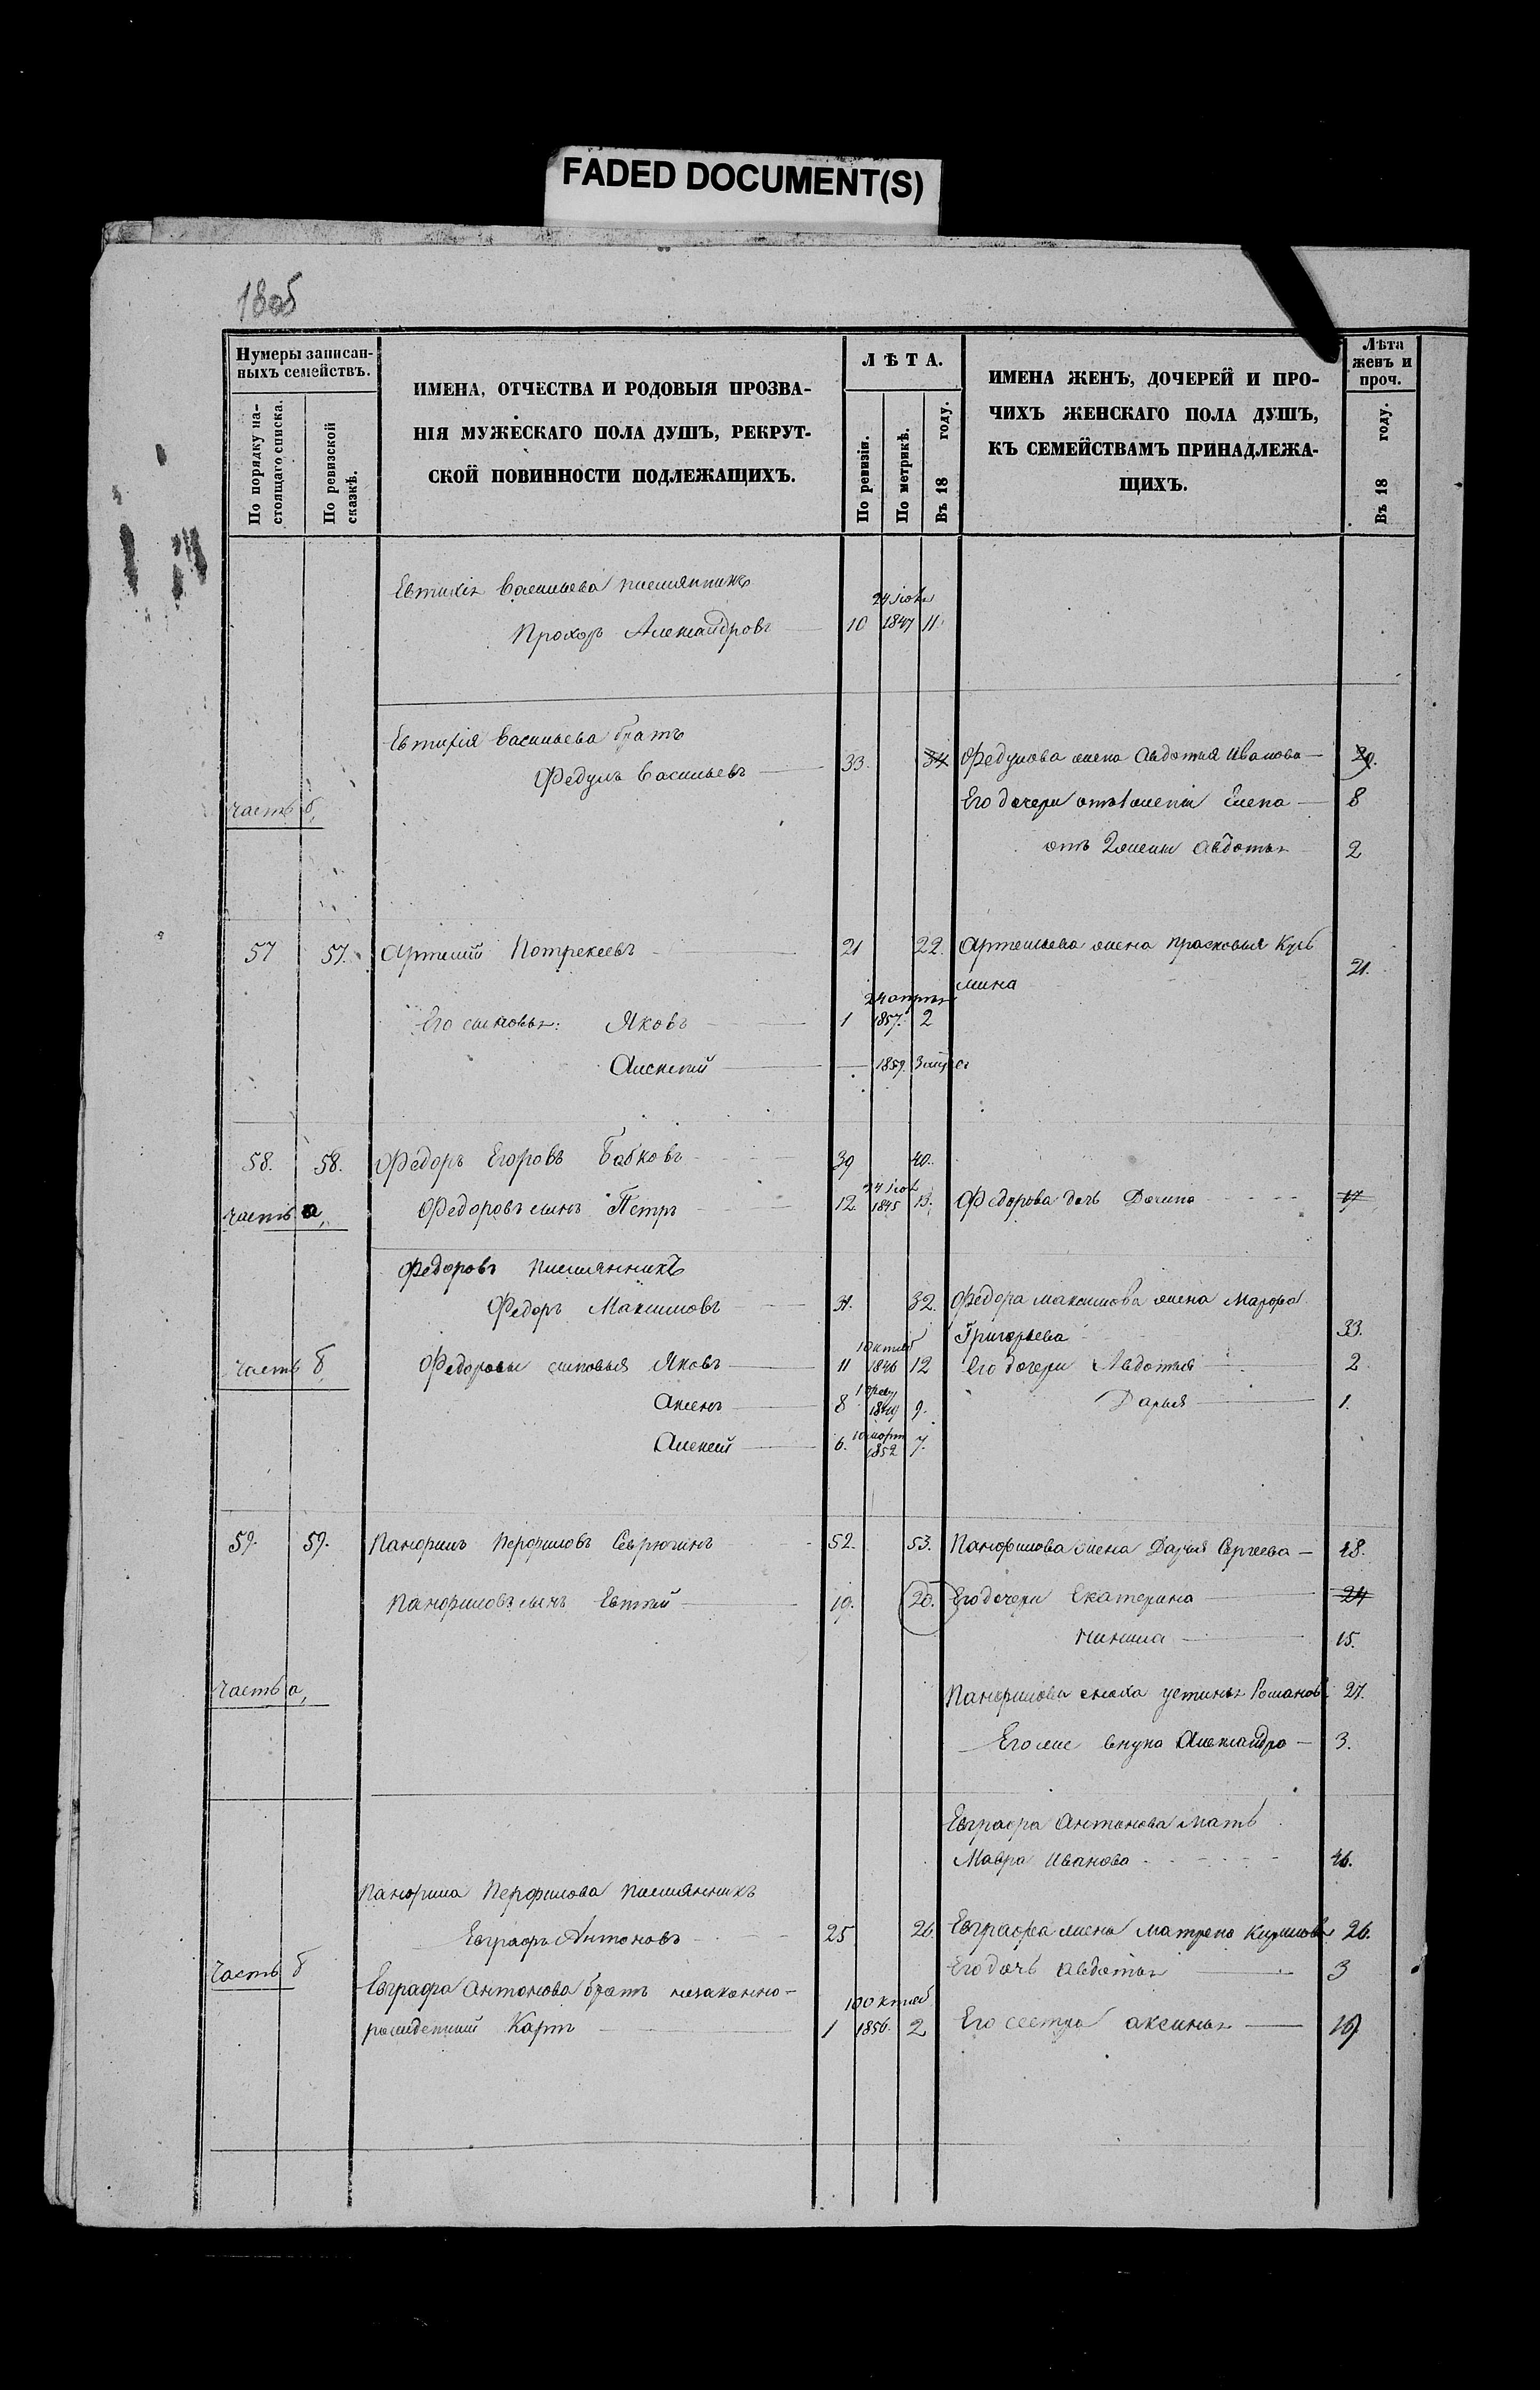 FADED DOCUMENT(S)
1805
Нумеры записан-
ныхъ семействъ.
По порядку на-
стоящаго списка.
По ревизской
сказкѣ.
ИМЕНА, ОТЧЕСТВА И РОДОВЫЯ ПРОЗВА-
НІЯ МУЖЕСКАГО ПОЛА ДУШЪ, РЕКРУТ-
СКОЙ ПОВИННОСТИ ПОДЛЕЖАЩИХЪ.
ЛѢТА.
По ревизіи.
По метрикѣ.
Въ 18 году.
ИМЕНА ЖЕНЪ, ДОЧЕРЕЙ И ПРО-
ЧИХЪ ЖЕНСКАГО ПОЛА ДУШЪ,
КЪ СЕМЕЙСТВАМЪ ПРИНАДЛЕЖА-
ЩИХЪ.
Лѣта
женъ и
проч.
Въ 18 году.
Евтихія Васильева племянникъ
Прохоръ Александровъ 10 1847 11
Евтихія Васильева братъ
Федулъ Васильевъ 33. 34 Федулова жена Авдотья Иванова 29.
часть б, Его дочери отъ 1 жены Елена 8
отъ 2 жены Авдотья 2
57 57. Артемій Патрекеевъ 21 22. Артемьева жена Прасковья Кузь
мина 21.
Его сыновья: Яковъ 1 1857. 2
Алексей 1859.
58. 58. Федоръ Егоровъ Бабковъ 39 40.
часть а, Федоровъ сынъ Петръ 12. 1845 13. Федорова дочь 17
Федоровъ племянникъ
Федоръ Максимовъ 31. 32. Федора Максимова жена Марфа
Григорьева 33.
часть б, Федоровы сыновья Яковъ 11 1846 12 Его дочери Авдотья 2
Аксенъ 8 1849 9. Дарья 1.
Алексей 6. 10 март 1852 7.
59. 59. Панфилъ Перфиловъ Севрюгинъ 52. 53. Панфилова жена Дарья Сергеева 48.
Панфиловъ сынъ Евтей 19. 20. Его дочери Екатерина 24
15.
часть а, Панфилова сноха Устинья Романов 27.
Его же внука Александра 3.
Евграфа Антонова мать
Мавра Иванова 46.
Панфила Перфилова племянникъ
Евграфъ Антоновъ 25 26. Евграфа жена Матрена Кирилова 26.
часть б Его дочь Авдотья 3
Евграфа Антонова братъ незаконно-
рожденный Карпъ 1 1856. 2 Его сестра Аксинья